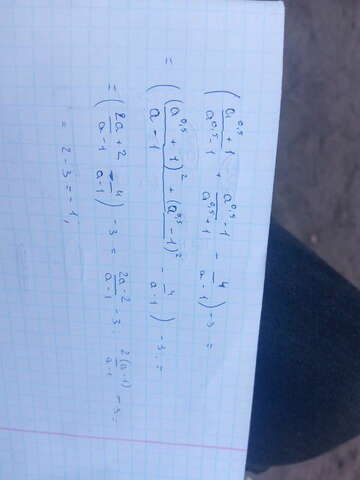 ( (a^0,5 + 1)/(a^0,5 - 1) + (a^0,5 - 1)/(a^0,5 + 1) - 4/(a - 1) ) - 3 =
= ( ((a^0,5 + 1)^2 + (a^0,5 - 1)^2)/(a - 1) - 4/(a - 1) ) - 3 =
= ( (2a + 2)/(a - 1) - 4/(a - 1) ) - 3 = (2a - 2)/(a - 1) - 3 = 2(a - 1)/(a - 1) - 3 =
= 2 - 3 = - 1,